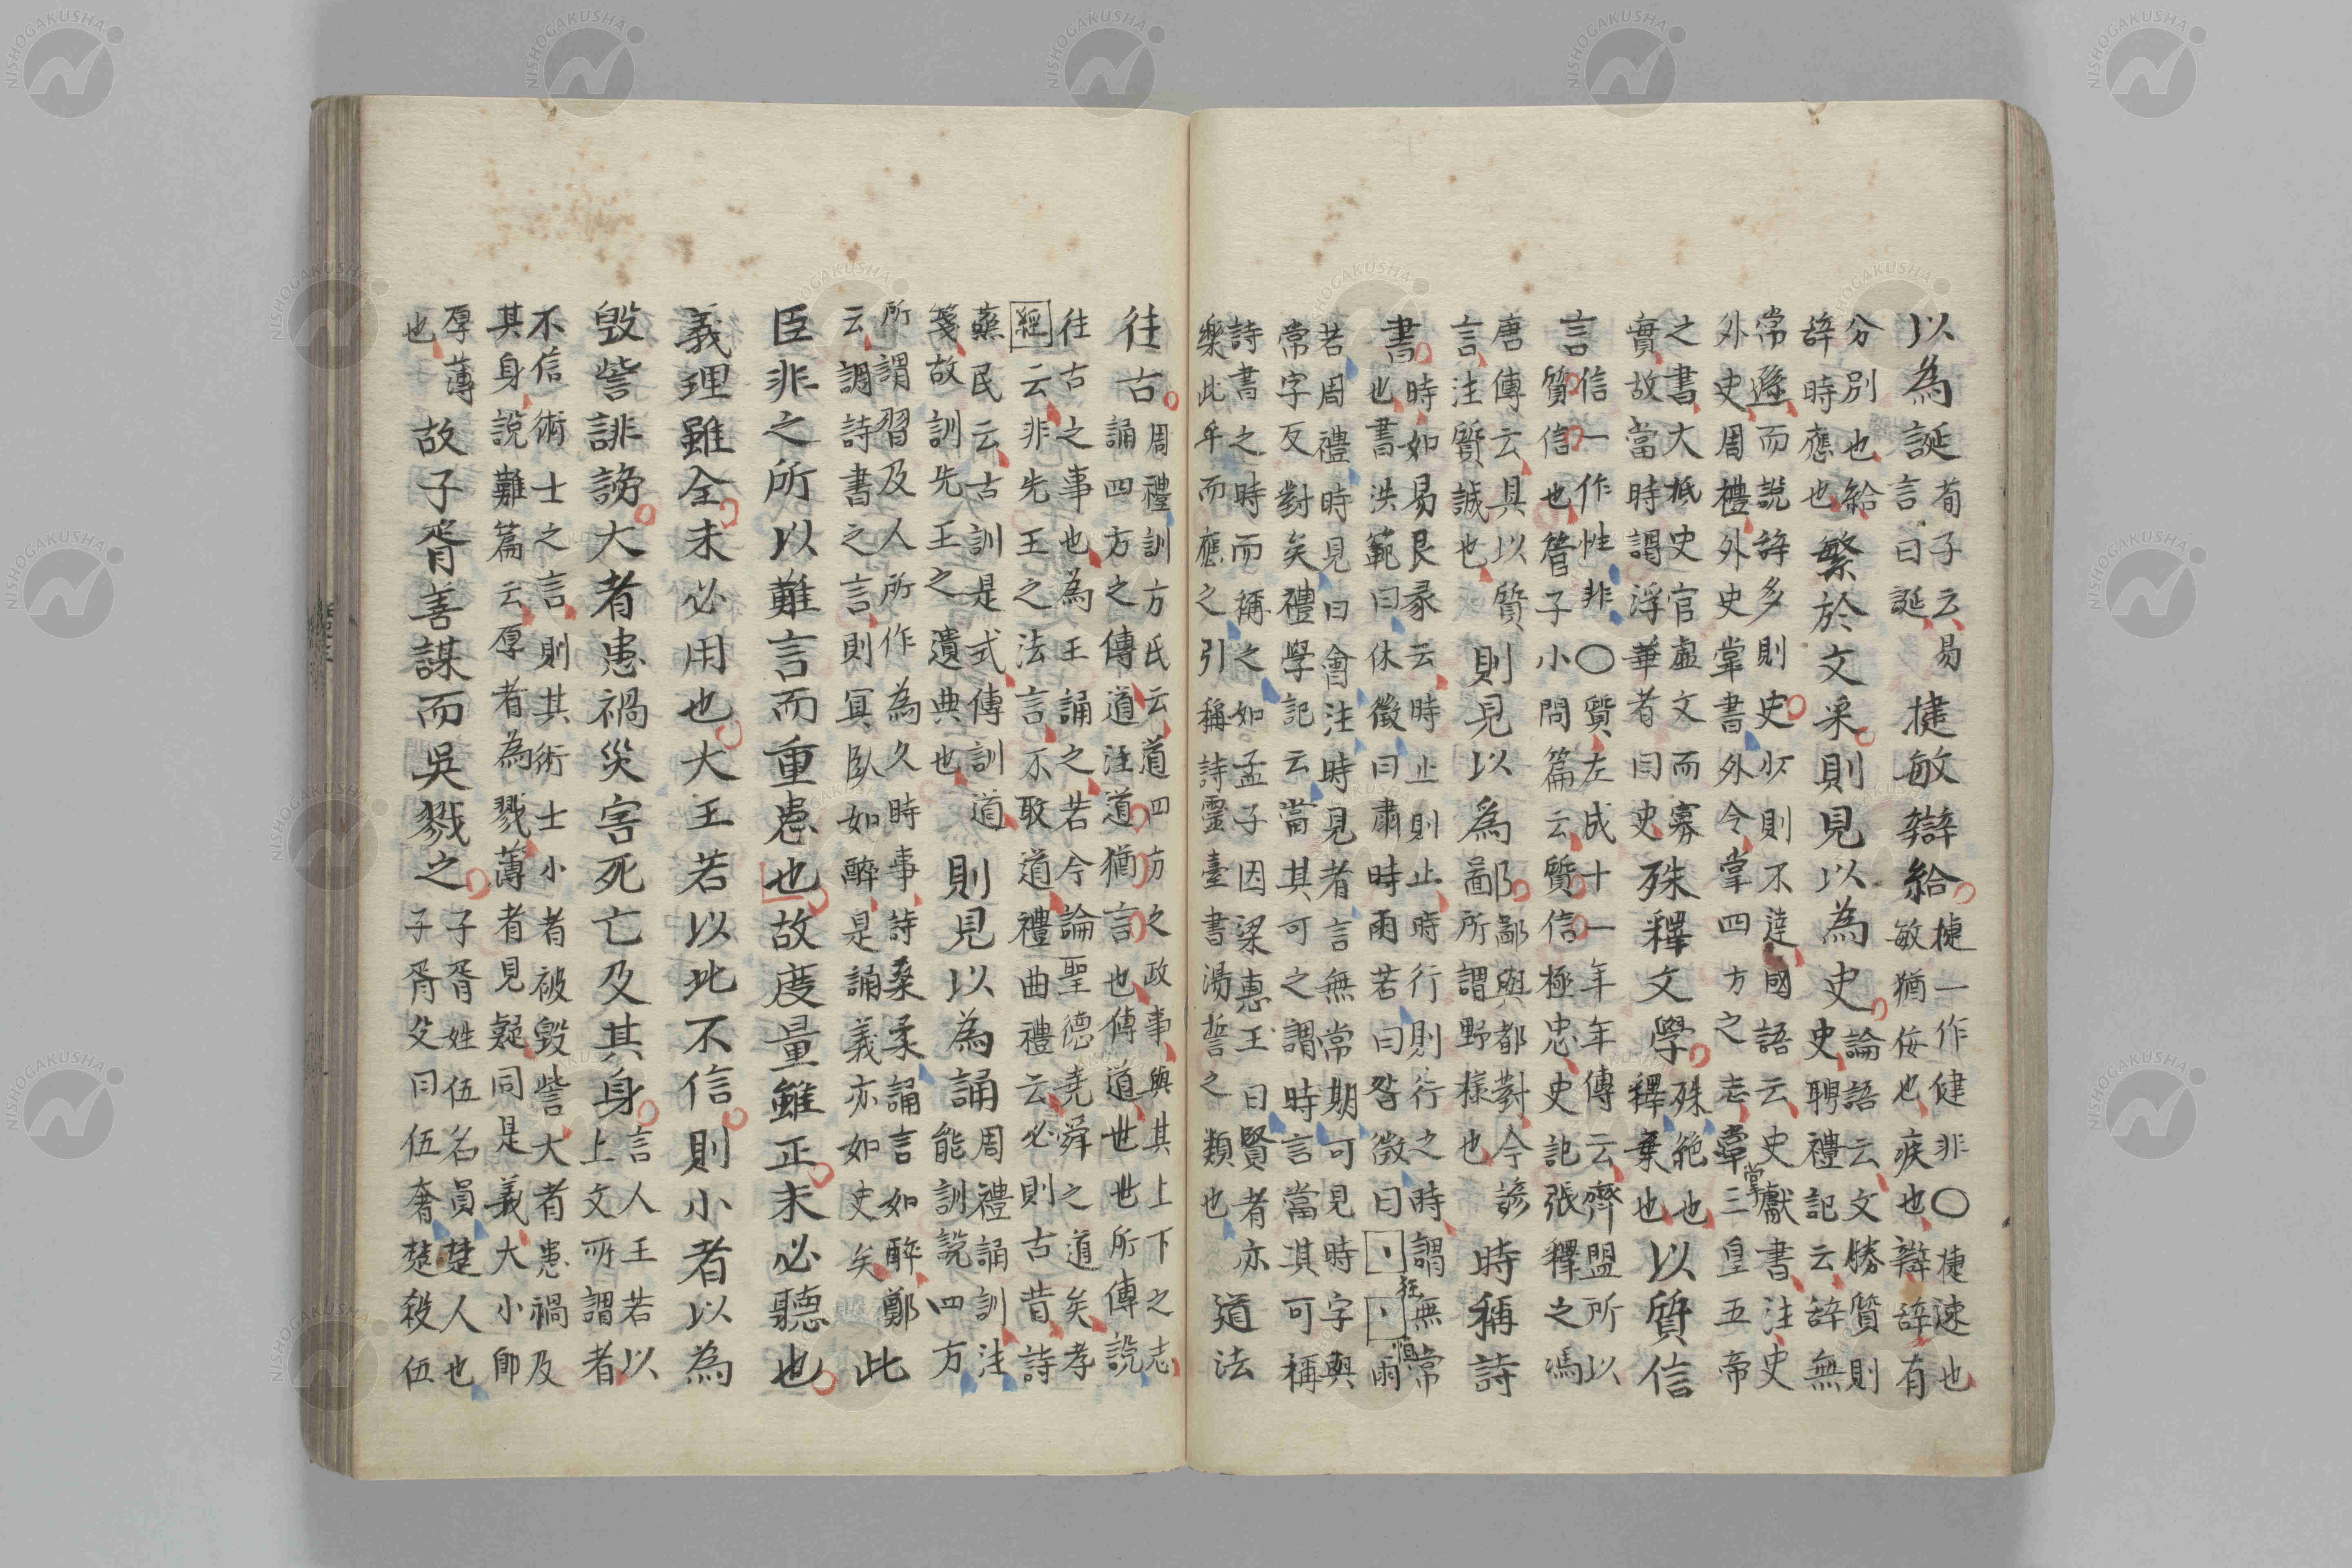 以為誕
荀子云易
言曰誕
捷敏辯給
捷一作健非○捷速也
敏猶佞也疾也辯辞有
分別也給
辞時應也
繁於文采則見以為史
論語云文勝質則
史聘禮記云辞無
常遜而說辞多則史少則不達國語云史獻書注史
外史周禮外史掌書外令掌四方之志掌三皇五帝
之書大抵史官虛文而寡
實故當時謂浮華者曰史
殊釋文學
殊絶也
釋棄也
以質信
言
信一作性非○質左成十一年年傳云齊盟所以
質信也管子小問篇云質信極忠史記張釋之馮
唐傳云具以質
言注質誠也
則見以為鄙
鄙與都對今諺
所謂野樣也
時稱詩
書
時如易艮彖云時止則止時行則行之時謂無常
也書洪範曰休徵曰肅時雨若曰咎徵曰狂恒雨
若周禮時見曰會注時見者言無常期可見時字與
常字反對矣禮學記云當其可之謂時言當其可稱
詩書之時而稱之如孟子因梁惠王曰賢者亦
樂此乎而應之引稱詩靈臺書湯誓之類也
道法
往古
周禮訓方氏云道四方之政事與其上下之志
誦四方之傳道注道猶言也傳道世世所傳說
往古之事也為王誦之若今論聖德尭舜之道矣孝
經云非先王之法言不敢道禮曲禮云必則古昔詩
蒸民云古訓是式傳訓道
箋故訓先王之遺典也
則見以為誦
周禮誦訓注
能訓說四方
所謂習及人所作為久時事詩桑柔誦言如醉鄭
云調詩書之言則冥臥如醉是誦義亦如史矣
此
臣非之所以難言而重患也故度量雖正未必聽也
義理雖全未必用也大王若以此不信則小者以為
毀訾誹謗大者患禍災害死亡及其身
言人王若以
上文所謂者
不信術士之言則其術士小者被毀訾大者患禍及
其身說難篇云厚者為戮薄者見疑同是義大小即
厚薄
也
故子胥善謀而吳戮之
子胥姓伍名員楚人也
子胥父曰伍奢楚殺伍